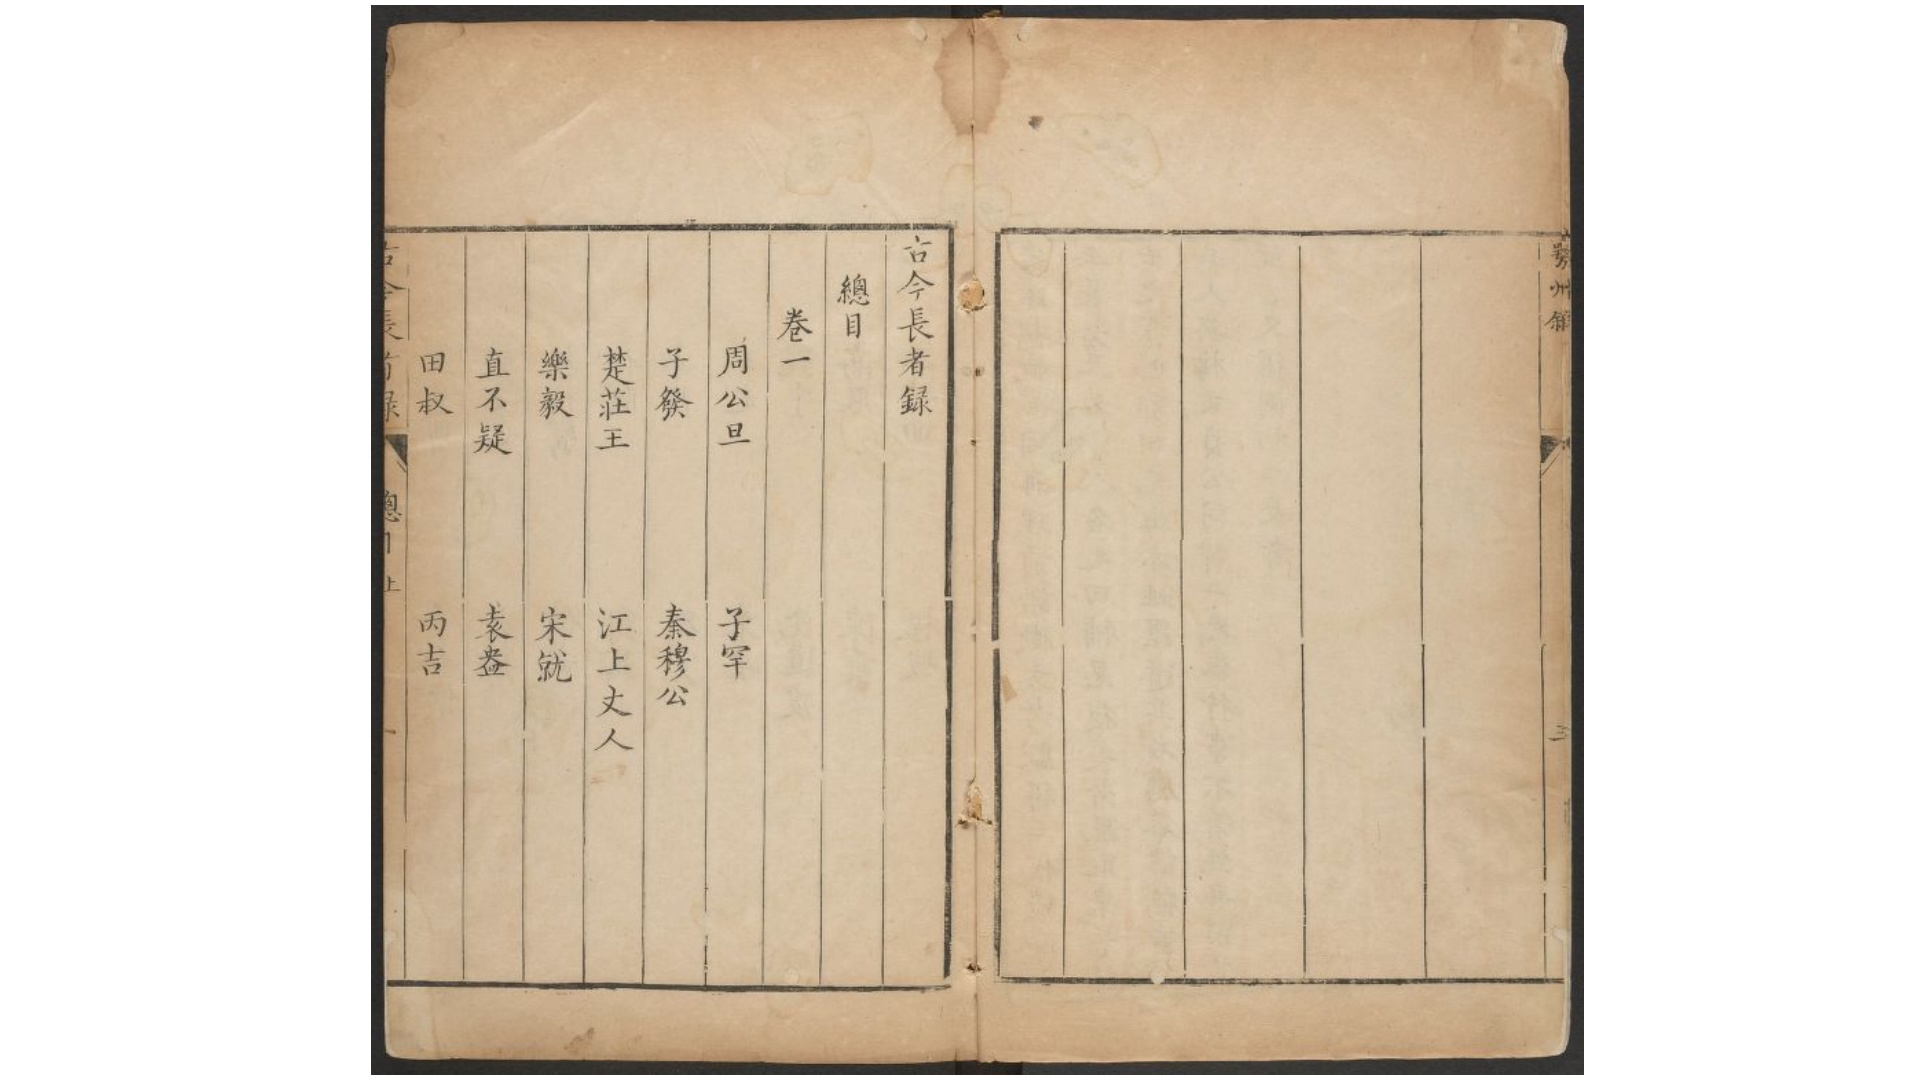 古今長者録
總目
卷一
周公旦 子罕
子發 秦穆公
楚莊王 江上丈人
樂毅 宋就
直不疑 袁盎
田叔 丙吉
古今長者録 總目 上 一